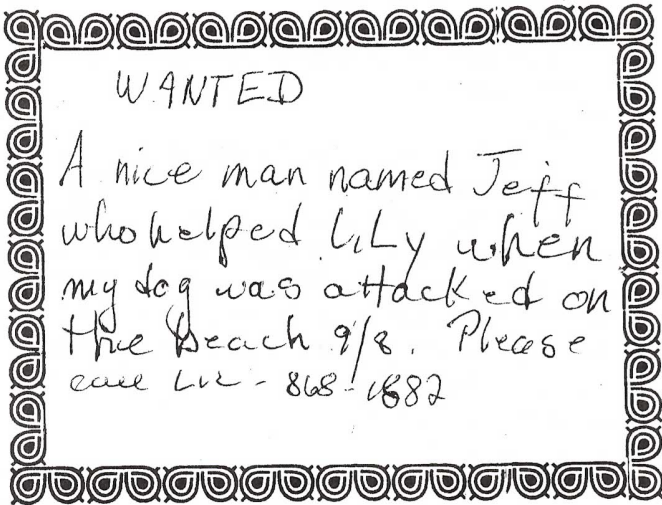 WANTED
A nice man named Jeff
who helped LiLy when
my dog was attacked on
the beach 9/8. Please
call Liz - 868-1882